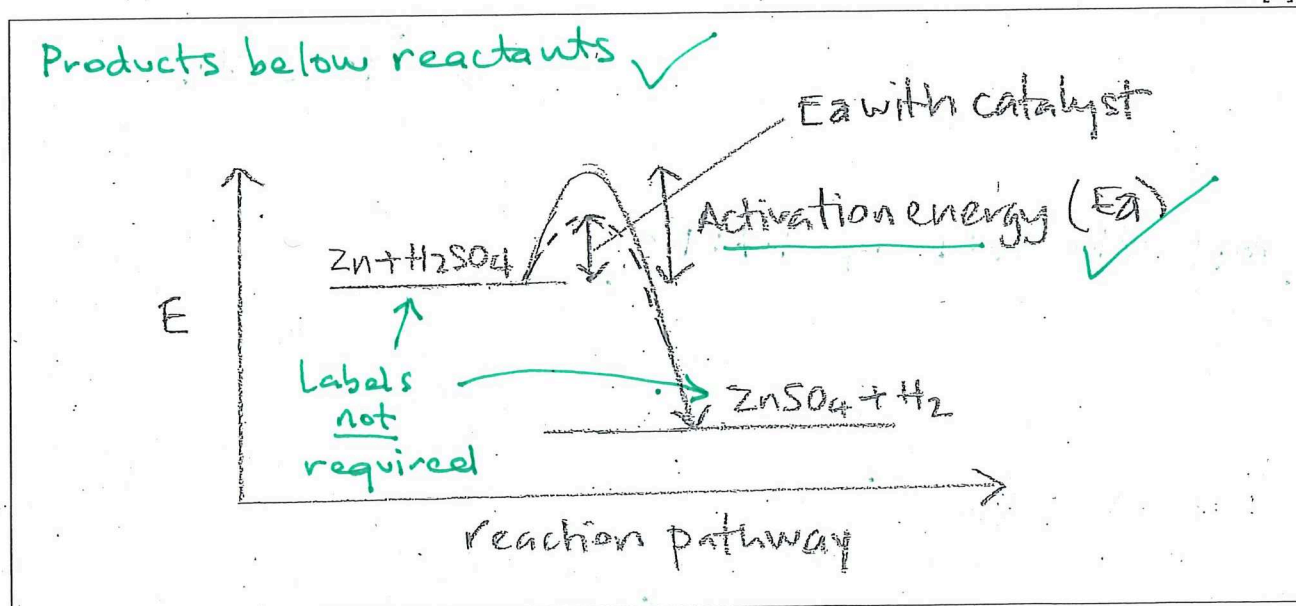 Products below reactants
Ea with catalyst
Activation energy (Ea)
Zn + H2SO4
E
Labels
not
required
ZnSO4 + H2
reaction pathway